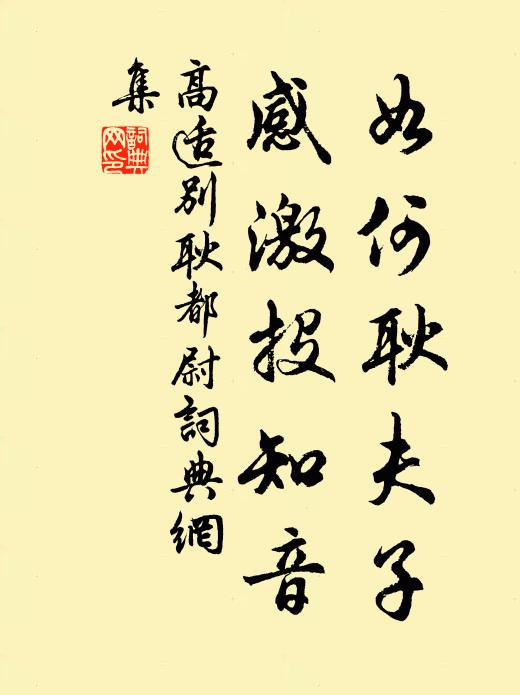 如何耿夫子
感激投知音
高适别耿都尉詞典網
集
詞典
网印